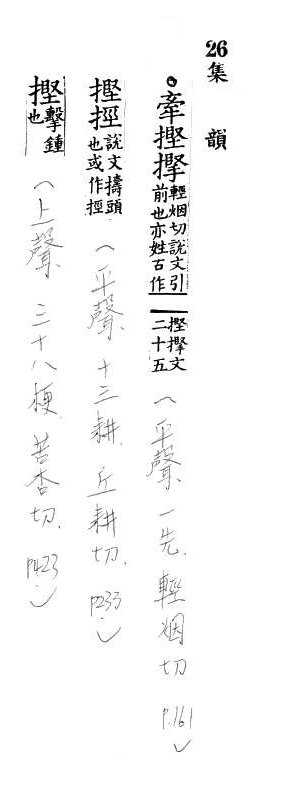 26
集韻
牽摼掔輕烟切說文引前也亦姓古作摼掔文二十五(平聲 一先. 輕烟切 p.161
摼挳說文擣頭也或作挳(平聲 十三耕. 丘耕切. p233.
摼擊鍾也(上聲 三十八梗 苦杏切. p423.